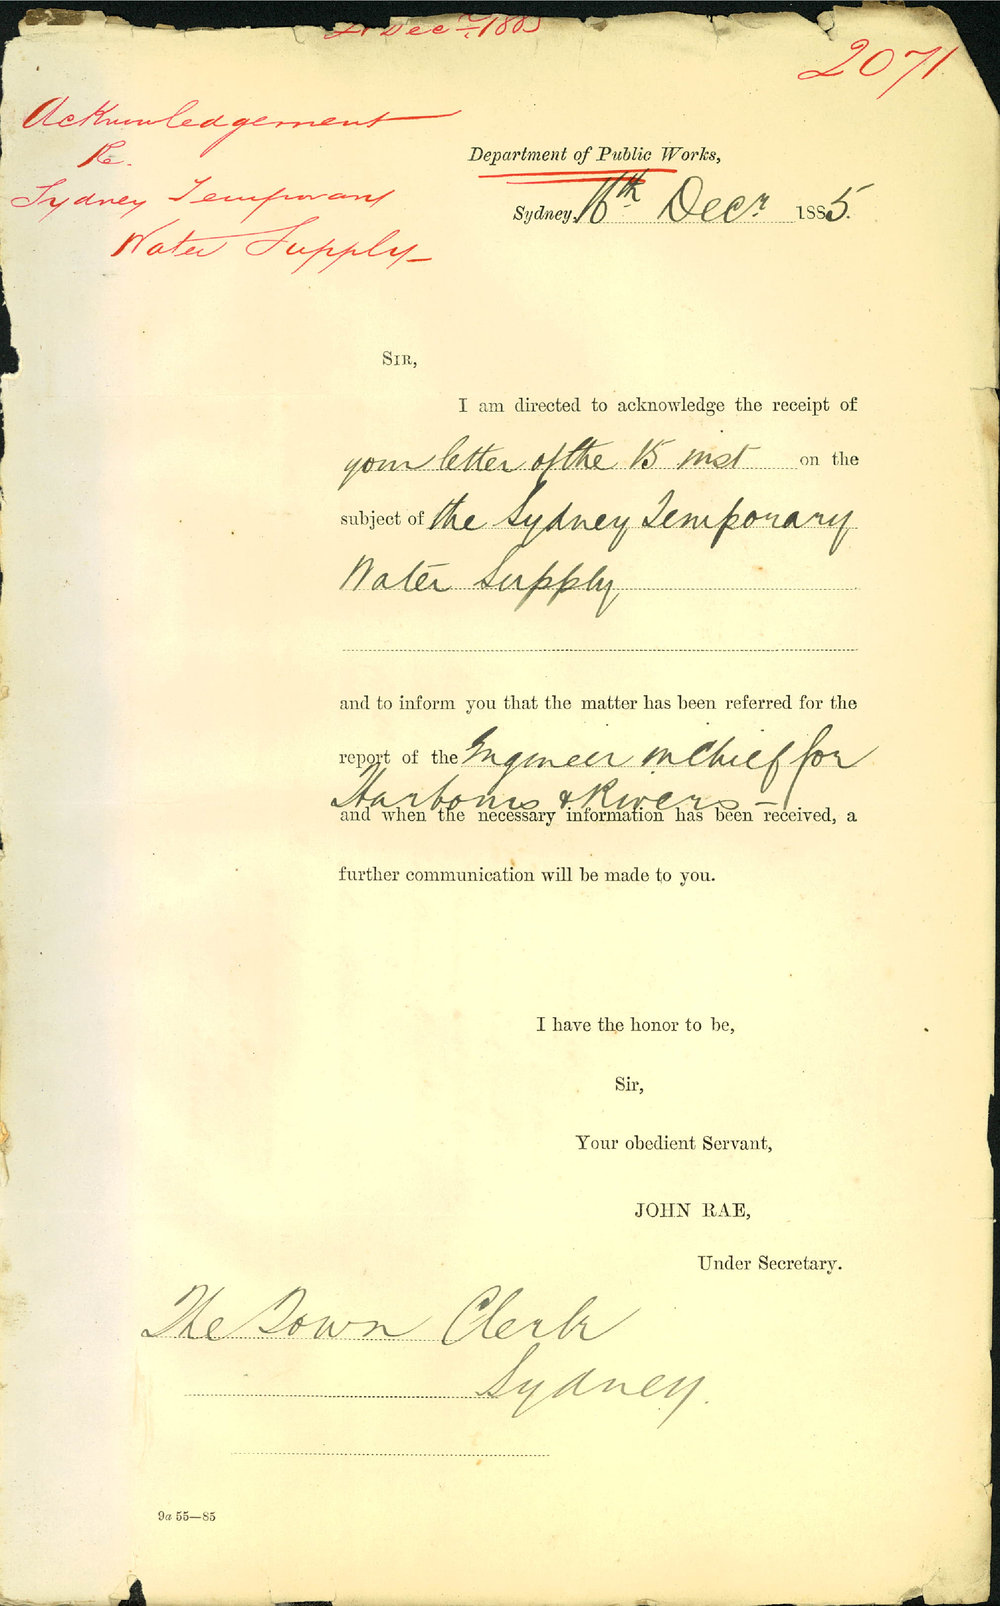 Decr. 1885
2071
Acknowledgement
Re.
Sydney Temporary
Water Supply
Department of Public Works,
Sydney, 16th Decr 1885.
SIR,
I am directed to acknowledge the receipt of
your letter of the 15 inst on the
subject of the Sydney Temporary
Water Supply
and to inform you that the matter has been referred for the
report of the Engineer in Chief for
Harbours & Rivers —
and when the necessary information has been received, a
further communication will be made to you.
I have the honor to be,
Sir,
Your obedient Servant,
JOHN RAE,
Under Secretary.
The Town Clerk
Sydney.
9a 55—85